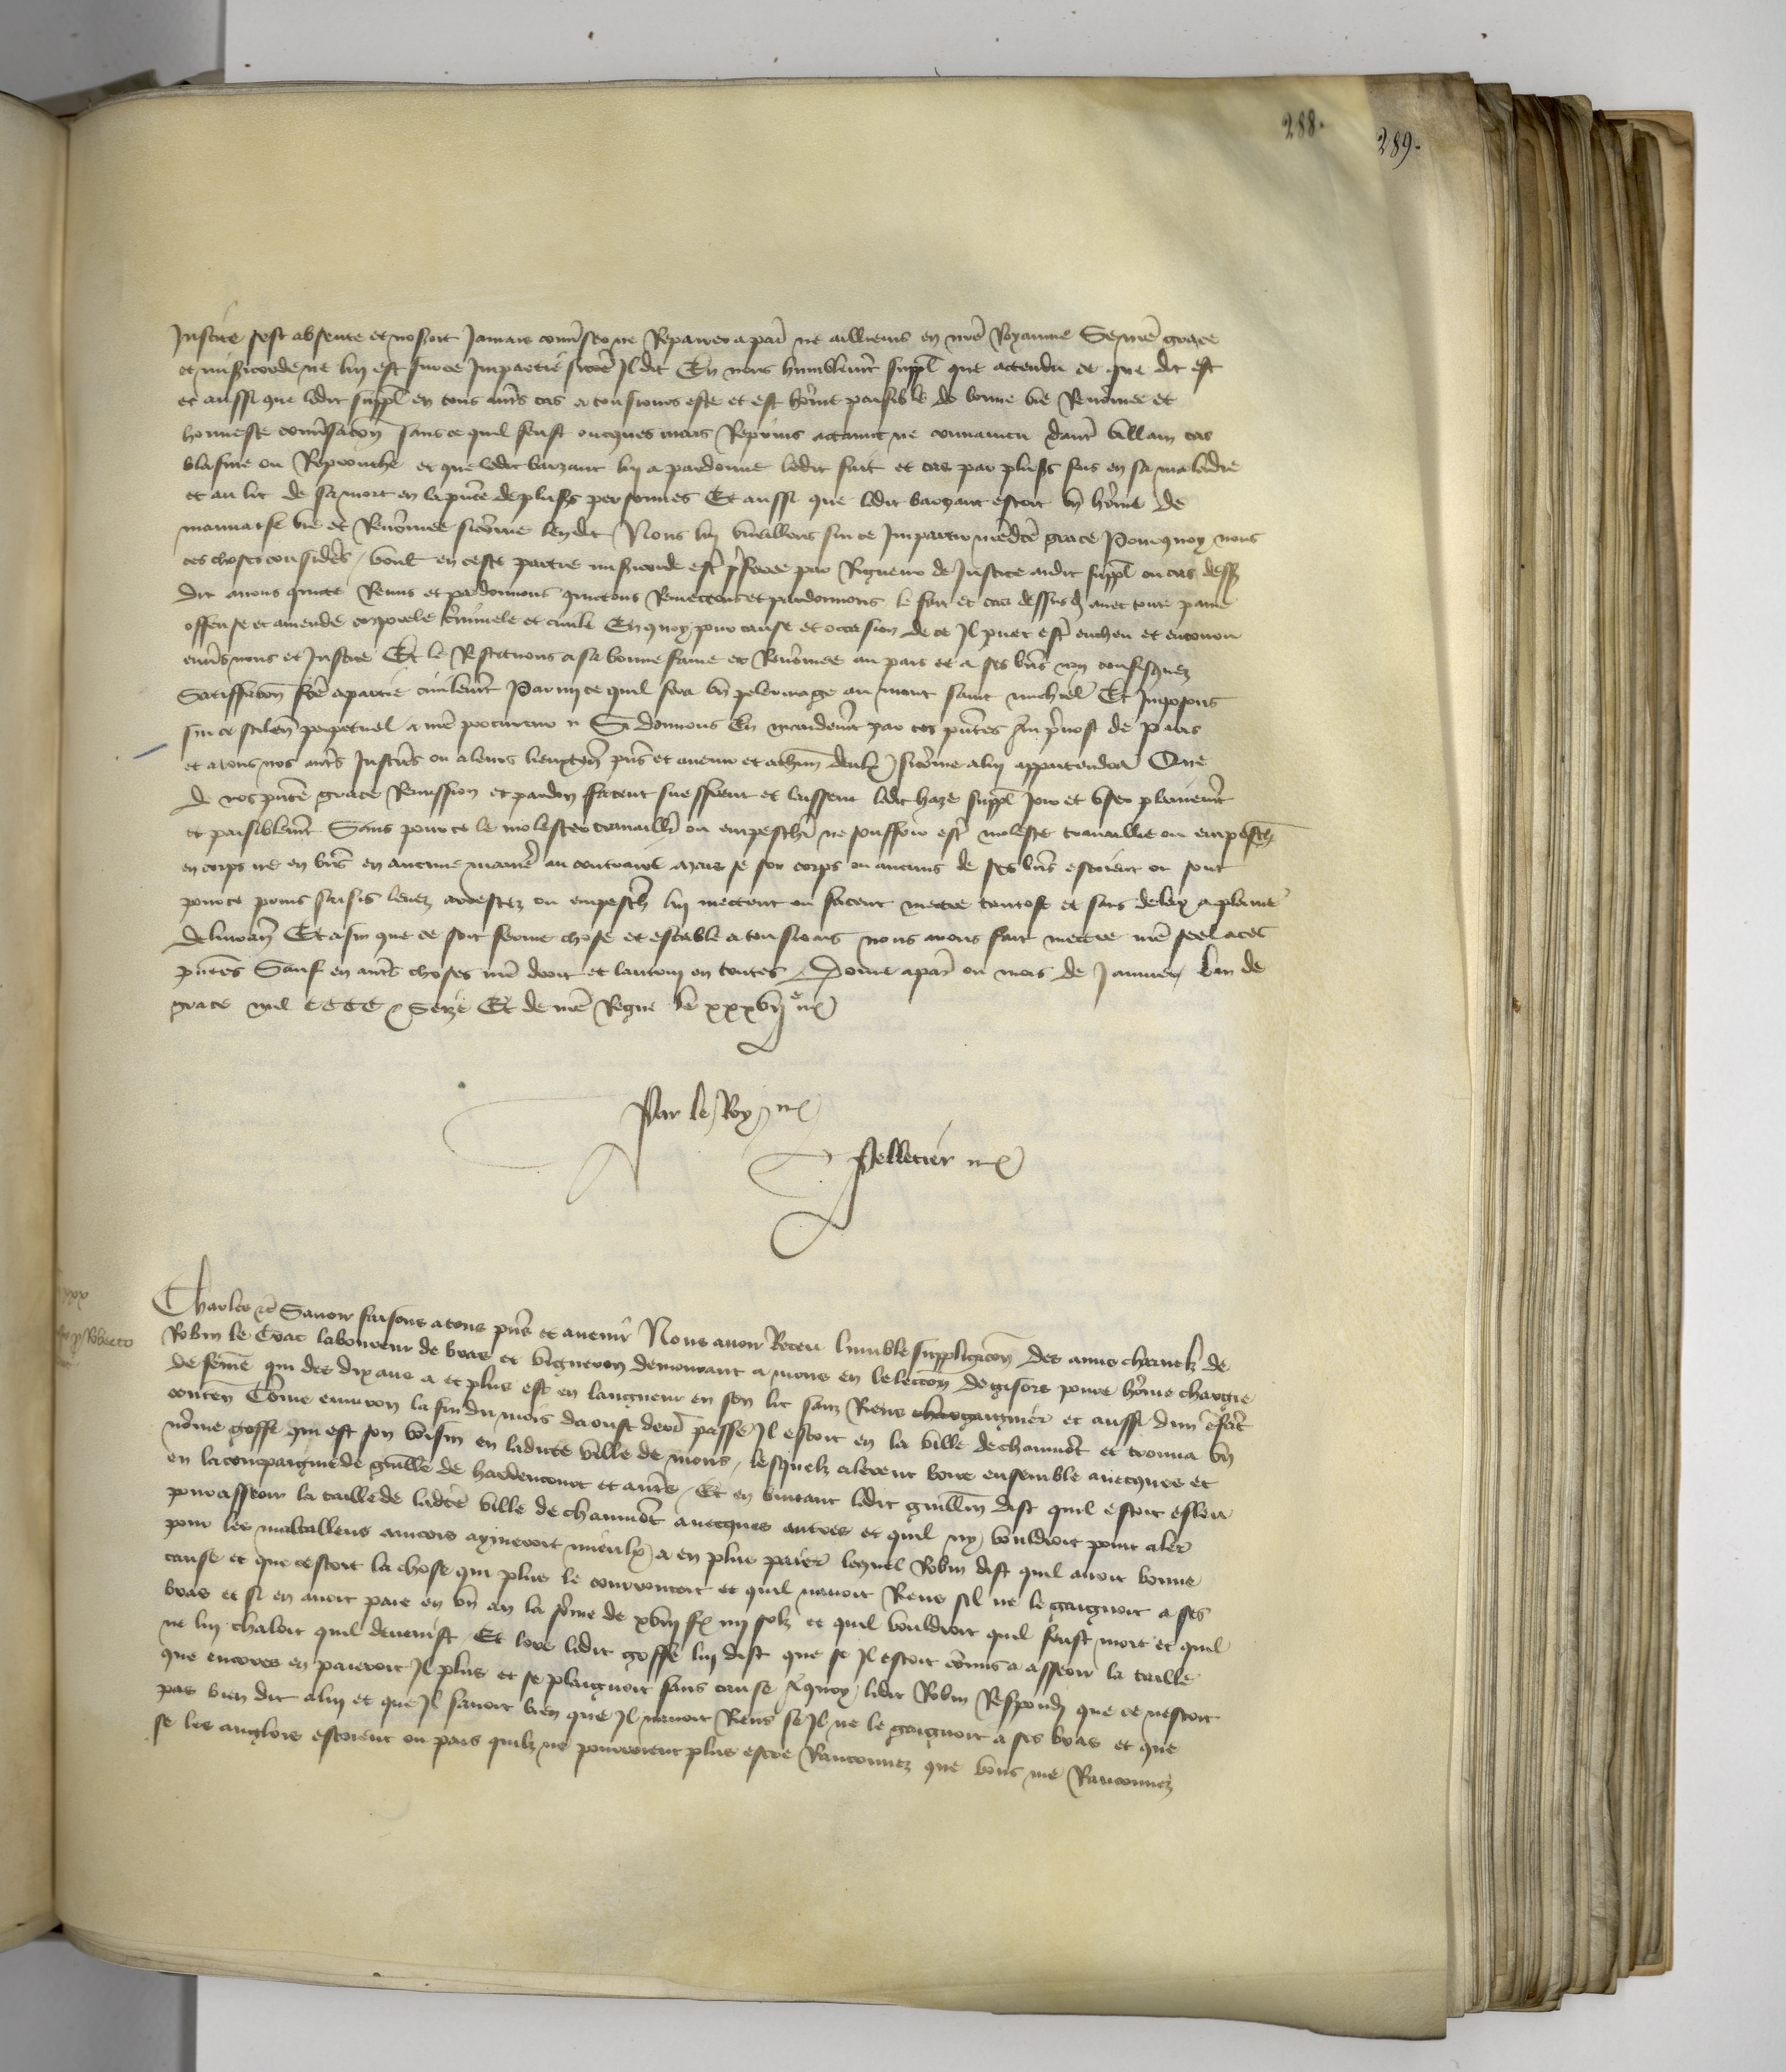 288.
289.
Justice sest absente et noseroit Jamais conuserne Reparer a par ne ailleurs en nrē Royaume Se nrē grace
et misericorde ne luy est sur ce Impartie sicōe Il dit En nous humblemt suppl que attendu ce que dit est
et aussi que ledit suppl en tous autrs cas a tousiours este et est hōme paisible de bonne vie Renōmee et
honneste conusacōn sans ce quil feust oncques mais Reprins attaint ne conuaincu daut villain cas
blasme ou Reprouche et que ledit barzant luy a pardonne ledit fait et cas par plusrs fois en sa maladie
et au lit de sa mort en la pnce de plusrs personnes Et aussi que ledit barzant estoit vn hōme de
mauuaise vie et Renōmee sicōme len dit Nous luy vueillons sur ce Impartir nrēdcē grace Pourquoy nous
ces choses considers / voult en ceste partie misericorde estr pferee par Rigueur de Justice audit suppl ou cas dess
dit auons quicte Remis et pardonnons quictons Remectons et pardonnons le fait et cas dessusd auec toute paine
offense et amende corporele criminele et ciuile En quoy pour cause et occasion de ce Il puet estr encheu et encouru
enuers nous et Justice Et le Restituons a sa bonne fame et Renōmee au pais et a ses bns non confisquez
Satisfaccōn fcē a partie ciuilemt Parmy ce quil fera vn pelerinage au mont saint michiel Et Imposons
sur ce scilence perpetuel a nrē procureur Si donnons En mandemt par ces pntes Au prnost de Paris
et a tous nos autrs Justicrs ou a leurs lieuxten pns et auenir et a chun deulx sicōme a luy appartendra Que
de nos pnte grace Remission et pardon facent sueffrent et laissent ledit haze suppl Joir et vser plainemt
et paisiblemt Sans pour ce le molester trauaillr ou empeschr ne souffrir estr moleste trauaillie ou empesch
en corps ne en bns en aucune manr au contraire mais se son corps ou aucuns de ses bns estoient ou sont
pour ce prins saisis leuez arrestez ou empesch luy mectent ou facent mectre tantost et sans delay a plaine
deliuran Et afin que ce soit ferme chose et estable a tousiours nous auons fait mectre nrē seel a ces
pntes Sauf en autrs choses nrē droit et lautruy en toutes Donne a pars ou mois de Januier Lan de
grace mil CCCC & Seize Et de nrē Regne le xxxvije

Par le Roy
Pelletier

Charles etc Sauoir faisons a tous pns et auenir Nous auoir Receu lumble supplicacōn des amis charnelz de
Robin le Grac laboureur de bras et vigneron demourant a mons en lelection de gisors poure hōme chargie
de femē qui des dix ans a et plus est en langueur en son lit sanz Riens gaignier et aussi dun enfant
conten Cōme enuiron la fin du mois daoust derr passe Il estoit en la ville de chaumōt et trouua vn
nōme goffe qui est son voisin en ladicte ville de mons / lesquelz alerent boire ensemble auecques et
en la compaignie de guille de hardencourt et autrs / Et en buuant ledit guillm dist quil estoit esleu
pour asseoir la taille de ladcē ville de chaumōt auecques autres et quil ny vouldroit point aler
pour les maltallens aincois aymeroit mieulx a en plus paier lequel Robin dist quil auoit bonne
cause et que cestoit la chose qui plus le courroucoit et quil nauoit Riens sil ne le gaignoit a ses
bras et si en auoit paie en vn an la sōme de xviij fr iiij solz et quil vouldroit quil feust mort et quil
ne luy chaloit quil deuenist / Et lors ledit goffe luy dist que se Il estoit cōmis a asseoir la taille
que encores en paieroit Il plus et se plaignoit sans cause Aquoy ledit Robin Respondi que ce nestoit
pas bien dit a luy et que Il sauoit bien que Il nauoit Riens se Il ne le gaignoit a ses bras et que
se les anglois estoient ou pais quilz ne pourroient plus estre Ranconnez que vous me Ranconnez
Roberto